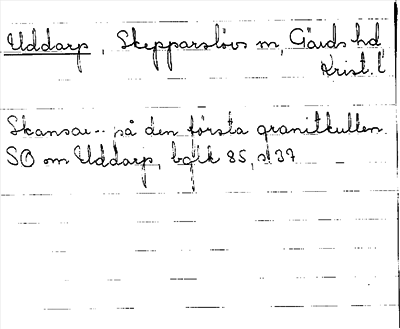 Uddarp, Skepparslövs sn, Gärds hd
Krist. l
Skansar -- på den första granitkullen
SO om Uddarp, bglk 85, s 37